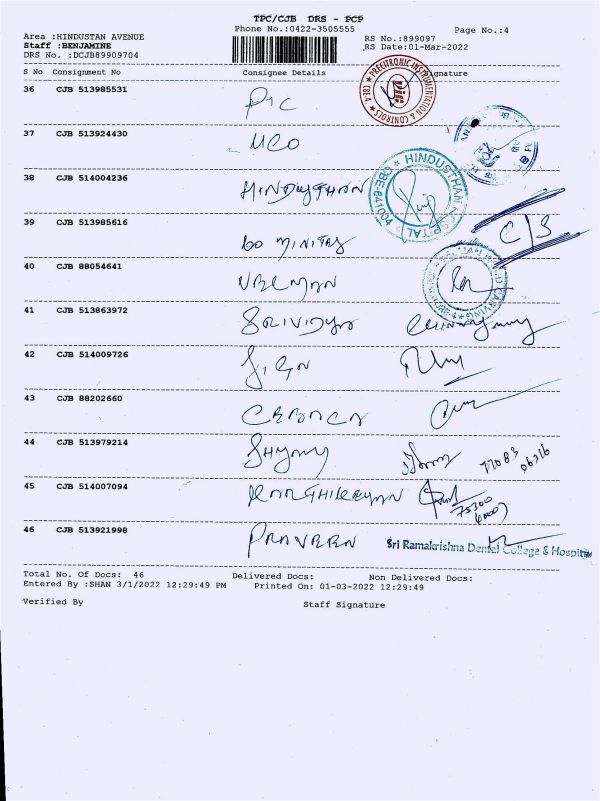 TPC/CJB DRS - PCP
Phone No.:0422-3505555 Page No.:4
Area :HINDUSTAN AVENUE RS No.:899097
Staff :BENJAMINE RS Date:01-Mar-2022
DRS No. :DCJB89909704
S No Consignment No Consignee Details Signature
36 CJB 513985531 PIC
PRECITRONIC INSTRUMENTATION & CONTROLS * CBE-4 *
37 CJB 513924430 UCO
38 CJB 514004236 HINDUSTHAN
HINDUSTHAN HOSPITAL * CBE-641004 *
39 CJB 513985616 60 MINITES C/S
40 CJB 88054641
41 CJB 513863972 SRIVIDYA
42 CJB 514009726
43 CJB 88202660
44 CJB 513979214 77083 06316
45 CJB 514007094 KARTHIKEYAN 75300
46 CJB 513921998 PRAVEEN Sri Ramakrishna Dental College & Hospital
Total No. Of Docs: 46 Delivered Docs: Non Delivered Docs:
Entered By :SHAN 3/1/2022 12:29:49 PM Printed On: 01-03-2022 12:29:49
Verified By Staff Signature